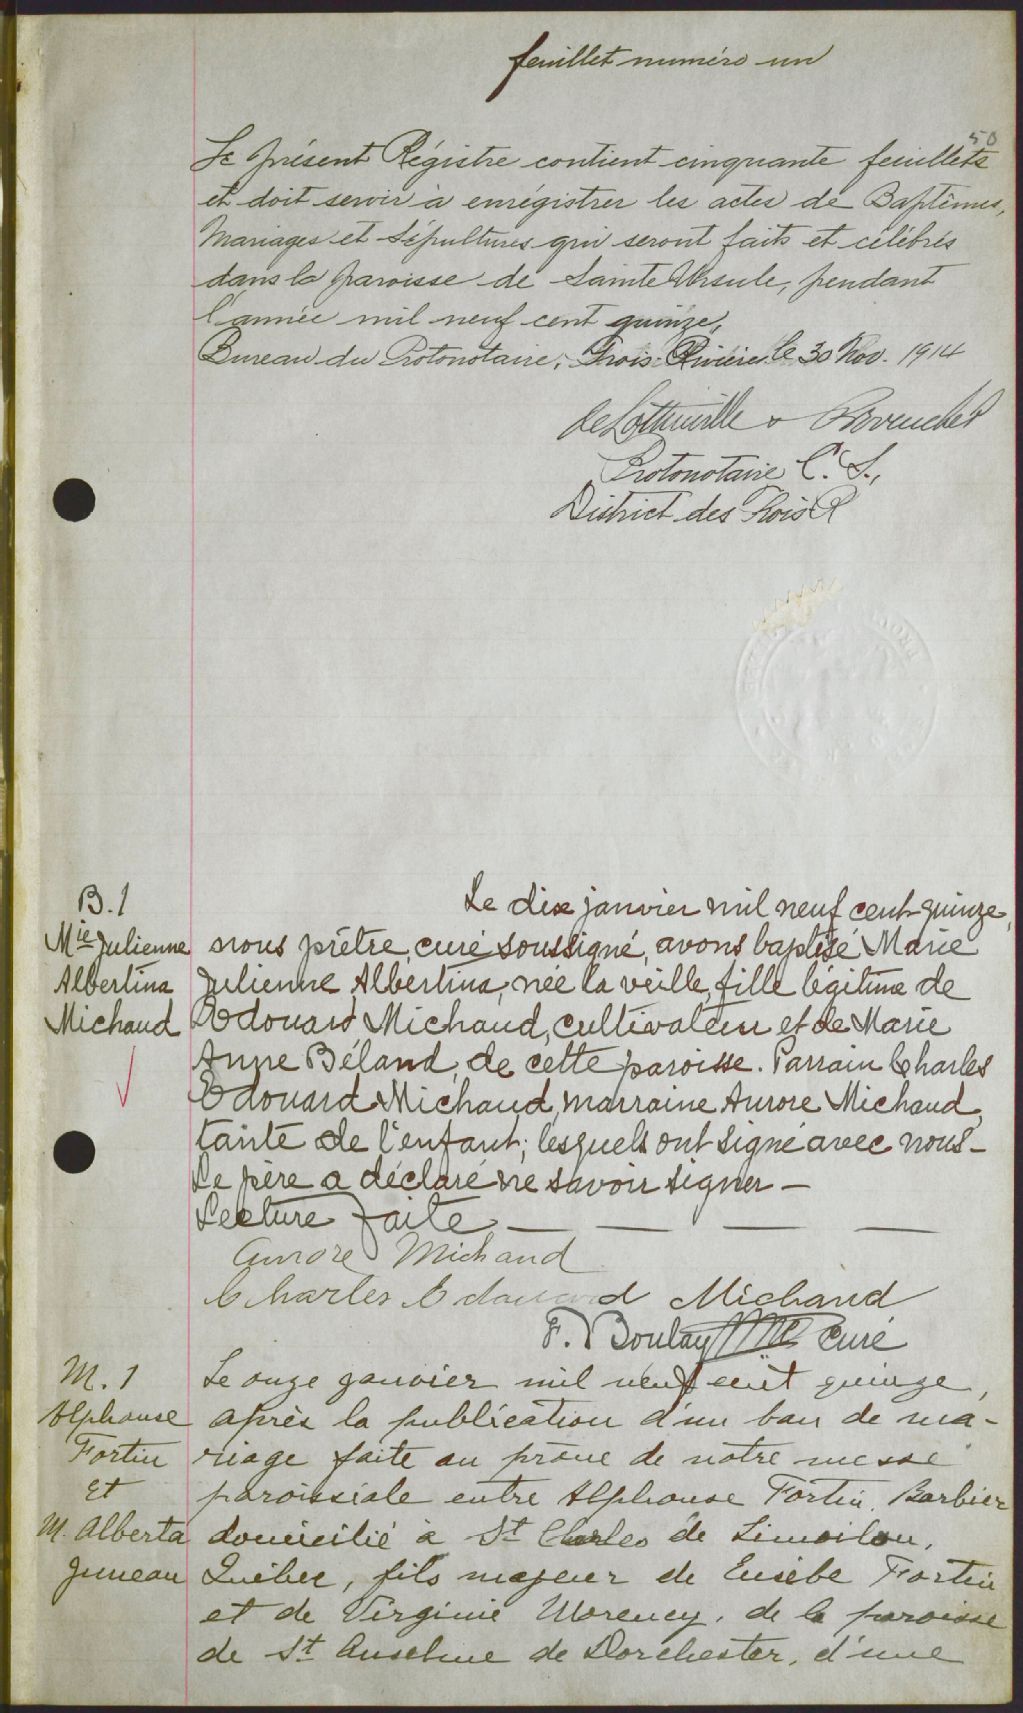 feuillet numéro un
50
Le présent Régistre contient cinquante feuillets
et doit servir à enrégistrer les actes de Baptêmes,
Mariages et Sépultures qui seront faits et célébrés
dans la paroisse de Sainte Ursule, pendant
l'année mil neuf cent quinze,
Bureau du Protonotaire, Trois-Rivières le 30 Nov. 1914
Protonotaire C. S.,
District des Trois R
B. 1
Mie Julienne
Albertina
Michaud
Le dix janvier mil neuf cent quinze,
nous prêtre, curé soussigné, avons baptisé Marie
Julienne Albertina, née la veille, fille légitime de
Edouard Michaud, cultivateur et de Marie
Anne Béland, de cette paroisse. Parrain Charles
Edouard Michaud, marraine Aurore Michaud,
tante de l'enfant; lesquels ont signé avec nous -
Le père a déclaré ne savoir signer -
Lecture faite -
Aurore Michaud
Charles Edouard Michaud
F. Boulay Ptre curé
M. 1
Alphonse
Fortin
et
M. Alberta
Juneau
Le onze janvier mil neuf cent quinze,
après la publication d'un ban de ma-
riage faite au prône de notre messe
paroissiale entre Alphonse Fortin, Barbier
domicilié à St Charles de Limoilou,
Québec, fils majeur de Eusèbe Fortin
et de Virginie Morency, de la paroisse
de St Anselme de Dorchester, d'une